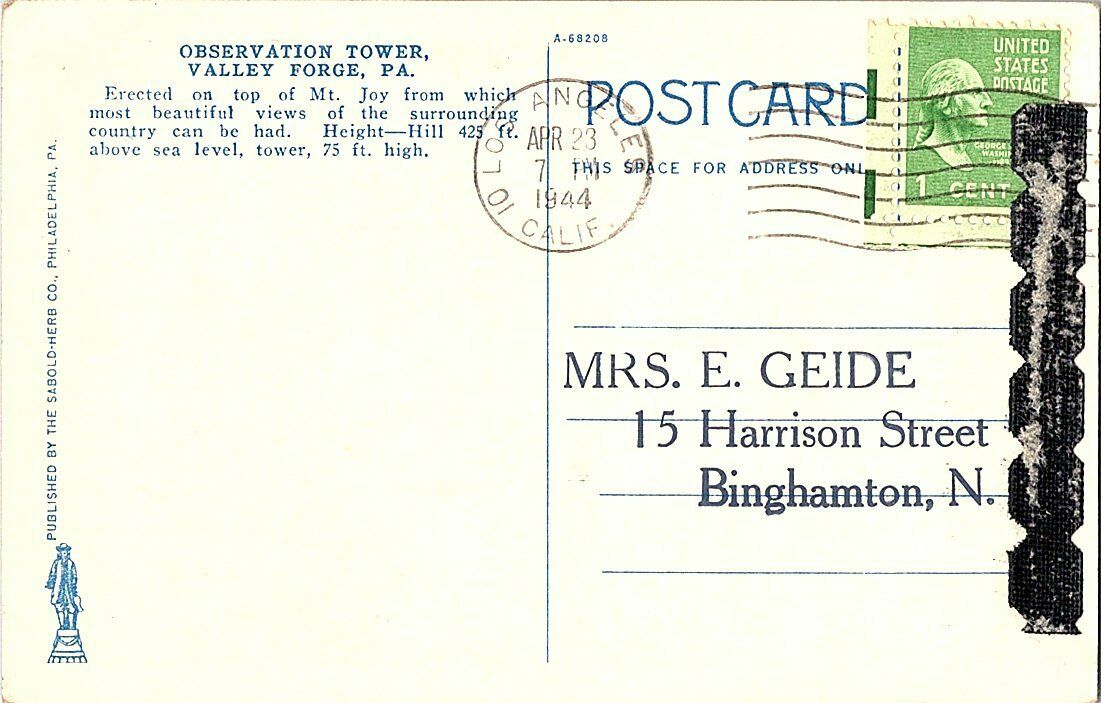 OBSERVATION TOWER,
VALLEY FORGE, PA.
Erected on top of Mt. Joy from which
most beautiful views of the surrounding
country can be had. Height—Hill 425 ft.
above sea level, tower, 75 ft. high.
PUBLISHED BY THE SABOLD-HERB CO., PHILADELPHIA, PA.
A-68208
POST CARD
THIS SPACE FOR ADDRESS ONL
LOS ANGELES
10
CALIF.
APR 23
7 PM
1944
UNITED
STATES
POSTAGE
GEORGE
WASHI
1 CENT
MRS. E. GEIDE
15 Harrison Street
Binghamton, N.